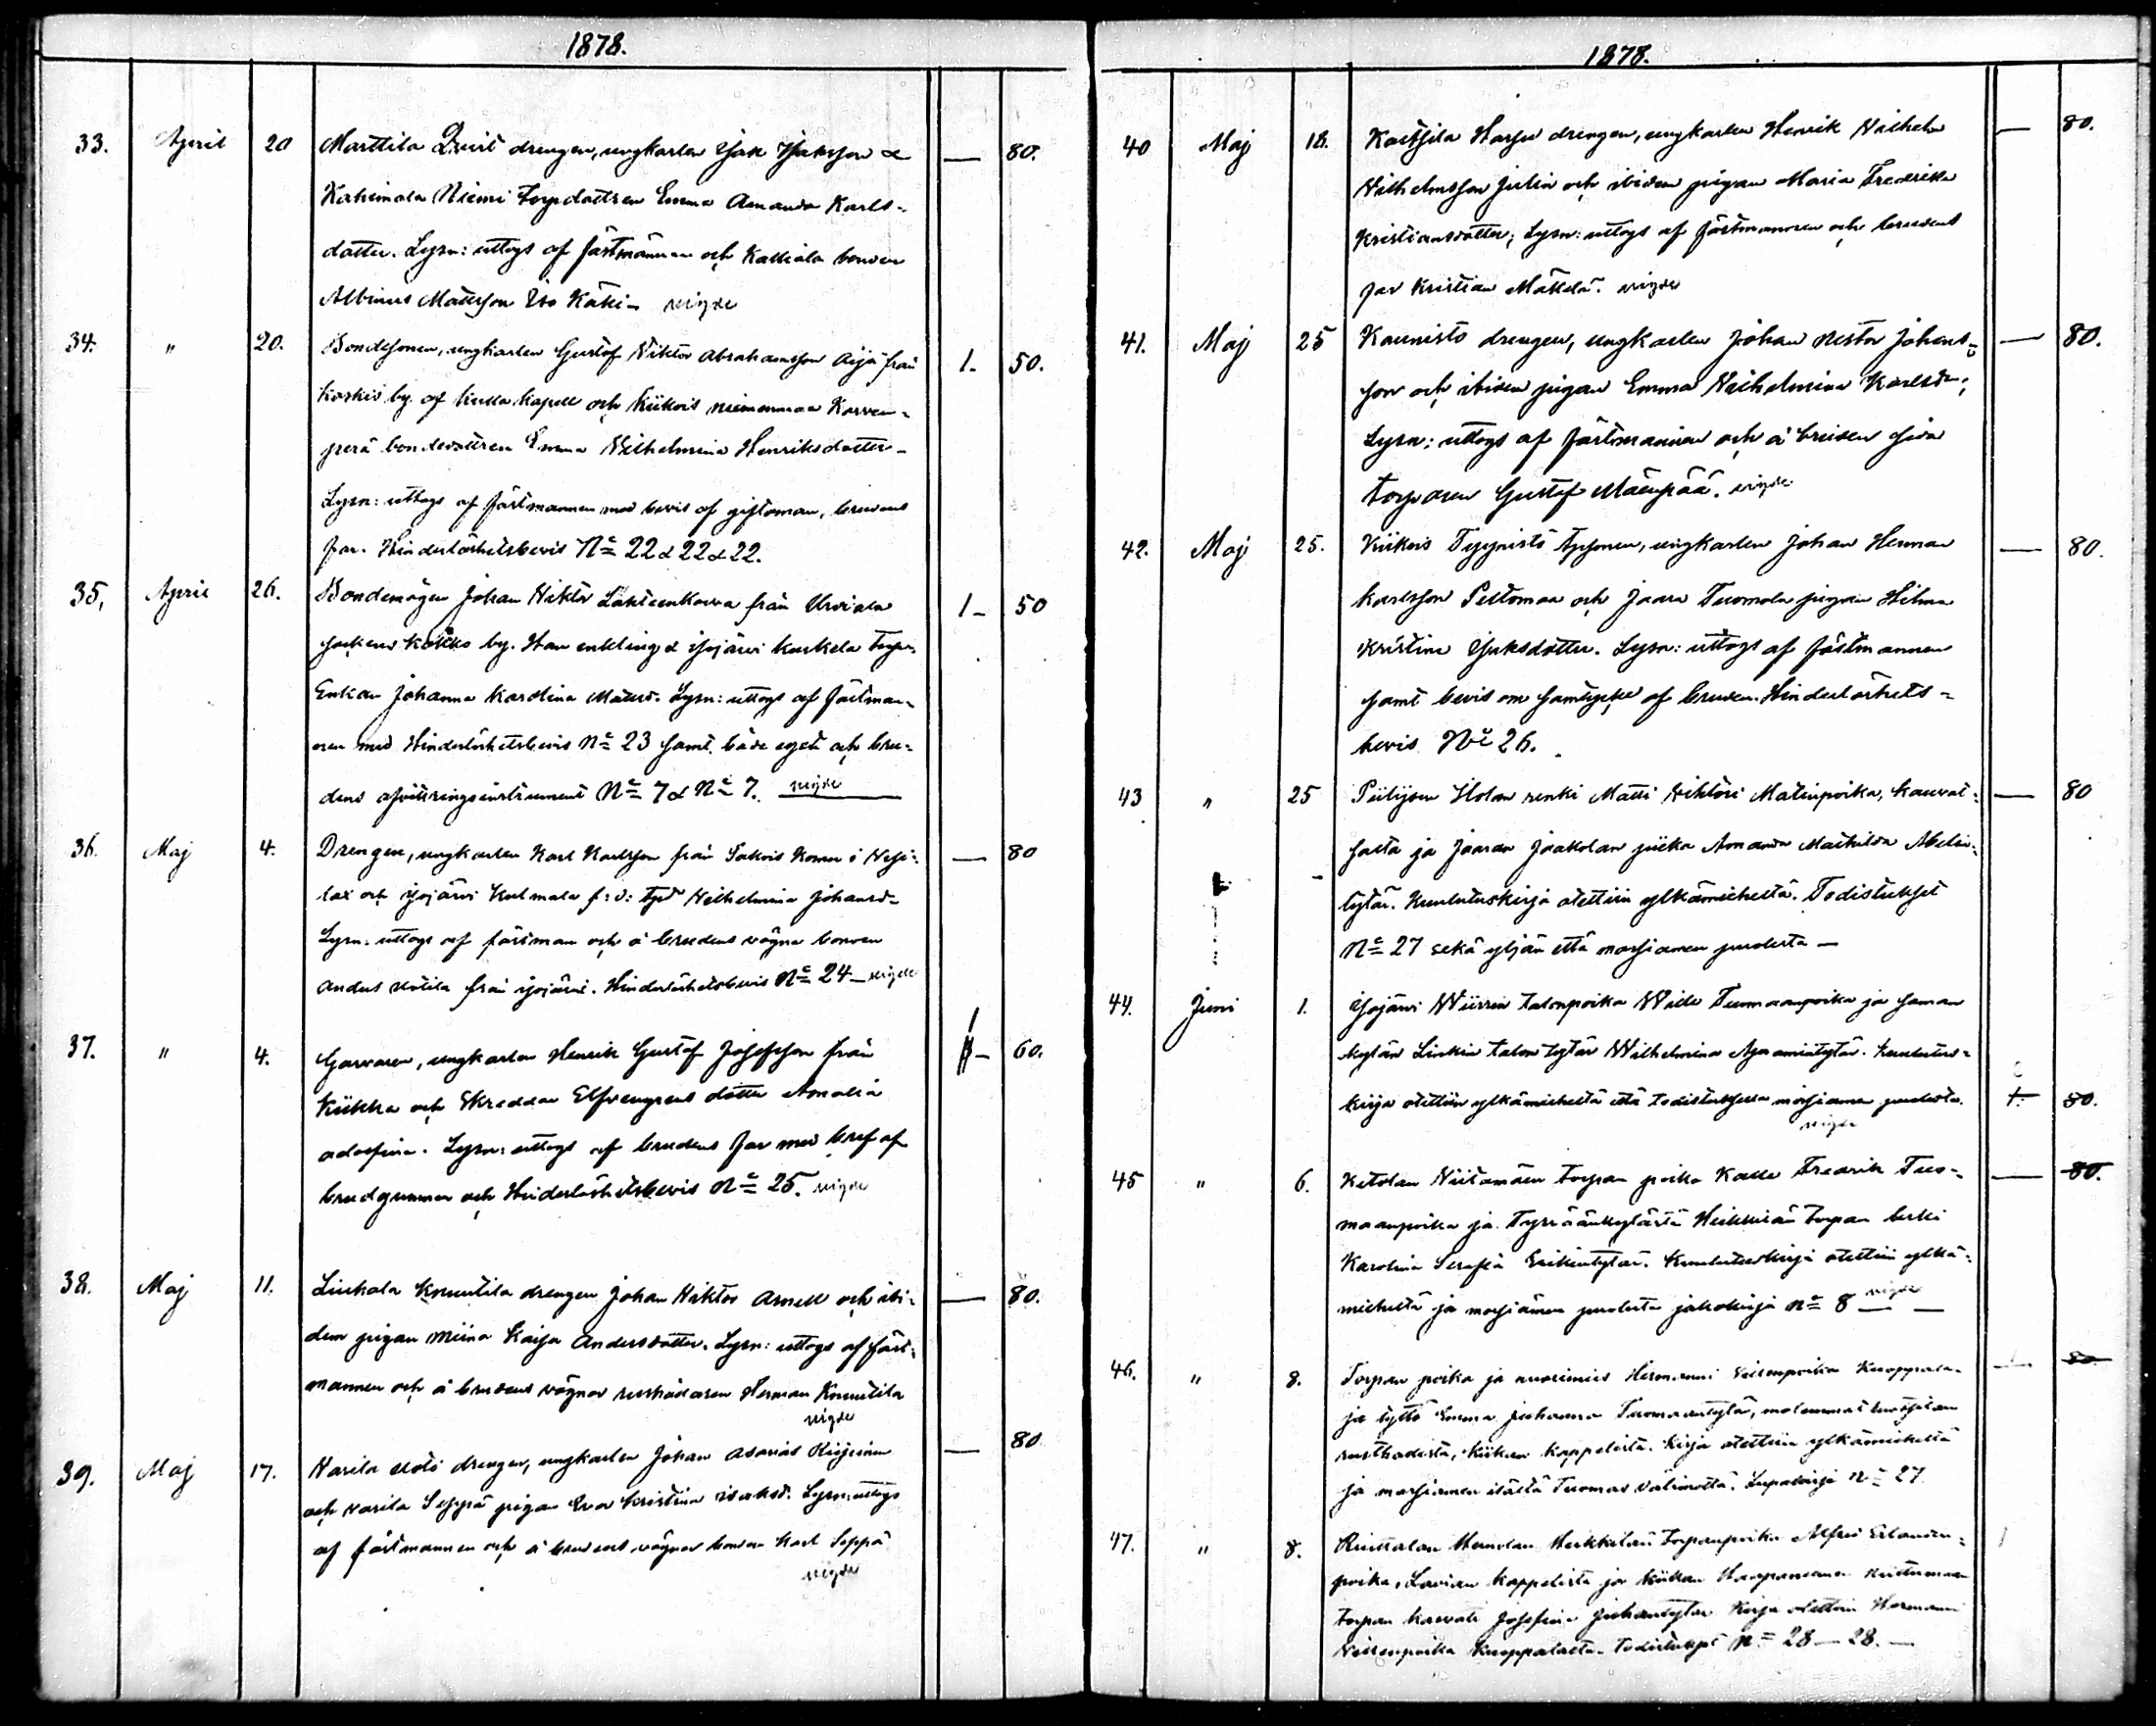 1878.
33. April 20 Marttila Qvist drengen, ungkarlen Isak Isaksson & — 80.
Kahimala Niemi torpdottren Emma Amanda Karls-
dotter. Lysn: uttogs af fästmannen och Kalliala bonden
Albinus Mattsson Iso Käki – vigde
34. " 20. Bondesonen, ungkarlen Gustaf Viktor Abrahamsson Äijä från 1. 50.
Koskis by af kapell och Kiikois Korven-
perä bondedottren Emma Wilhelmina Henriksdotter –
Lysn: uttogs af fästmannen med bevis af giftoman, brudens
far. Hinderlöshetsbevis No 22 & 22 & 22.
35, April 26. Bondemågen Johan Viktor Lähteenkorva från Urdiala 1– 50
sockens by. Han enkling & Isojärvi torp-
Enkan Johanna Karolina Matsd. Lysn: uttogs af fästman-
nen med Hinderlöshetsbevis No 23 samt både eget och bru-
dens afvittringsinstrument No 7 & No 7. vigde
36. Maj 4. Drengen, ungkarlen Karl Karlsson från i Vesi- — 80
lax och Isojärvi Kulmala Wilhelmina Johansd–
Lysn: uttogs af fästman och å brudens vägna bonden
Anders från Isojärvi. Hinderlöshetsbevis No 24 – vigde
37. " 4. Garvaren, ungkarlen Henrik Gustaf Josefsson från 1– 60.
Kiikka och Skreddar Elfvengrens dotter Amalia
Adolfina. Lysn: uttogs af brudens far med bref af
brudgummen och Hinderlöshetsbevis No 25. vigde
38. Maj 11. Liuhala Knuutila drengen Johan Viktor Arnell och ibi- — 80.
dem pigan Miina Kaisa Andersdotter. Lysn: uttogs af fäst-
mannen och å brudens vägnar rusthållaren Herman Knuutila
vigde
39. Maj 17. drengen, ungkarlen Johan Asarias — 80
och Seppä pigan Eva Kristina Isaksd. Lysn: uttogs
af fästmannen och å brudens vägnar bonden Karl Seppä
vigde
1878.
40 Maj 18. Harju drengen, ungkarlen Henrik Vilhelm — 80.
Vilhelmsson Julin och ibidem pigan Maria Fredrika
Kristiansdotter; Lysn: uttogs af fästmannen och brudens
far Kristian Mäkelä. vigde
41. Maj 25 Kaunisto drengen, ungkarlen Johan Nestor Johans- — 80.
son och ibidem pigan Emma Vilhelmina Karlsdr;
Lysn; uttogs af fästmannen och å bruden sida
torparen Gustaf Mäenpää. vigde
42. Maj 25. Kiikois Tyynistö tpsonen, ungkarlen Johan Herman — 80.
Karlsson Peltomaa och Jaara Tuomola pigan Hilma
Kristina Isaksdotter. Lysn: uttogs af fästmannen
samt bevis om samtycke af bruden. Hinderlöshets-
bevis No 26.
43 " 25 Holan renki Matti Viktori Matinpoika, Kauvat- — 80
salta ja Jaaran Jaakkolan piika Amanda Mathilda Abelin-
tytär. Kuulutuskirja otettiin ylkämieheltä. Todistukset
No 27 sekä yljän että morsiamen puolesta –
44. Juni 1. Isojärvi talonpoika Ville Tuomaanpoika ja saman
kylän Linkin talon tytär Wilhelmina tytär. Kuulutus-
kirja otettiin ylkämieheltä että todistuksella morsiamen puolesta. 1. 50.
vigde
45 " 6. Ketolan Niitamäen torpan poika Kalle Fredrik Tuo- — 80.
maanpoika ja Heikkilän torpan leski
Karolina Serafia Erikintytär. Kuulutuskirja otettiin ylkä-
mieheltä ja morsiamen puolesta jakokirja No 8 — vigde —
46. " 8. Torpan poika ja nuorimies Hermanni poika Kuoppala – — 80
ja tyttö Emma Juhanna Tuomaantytär, molemmat
rusthollista, Kiikan kappelista. Kirja otettiin ylkämieheltä
ja morsiamen isältä Tuomas Lupakirja No 27
47. " 8. Heikkilän torpanpoika Alfred Erlandin-
poika, Lavian kappelista ja Kiikan
torpan Josefina Juhantytär Kirja otettiin Hermanni
poika Kuoppalasta. Todistukset No 28 – 28. –